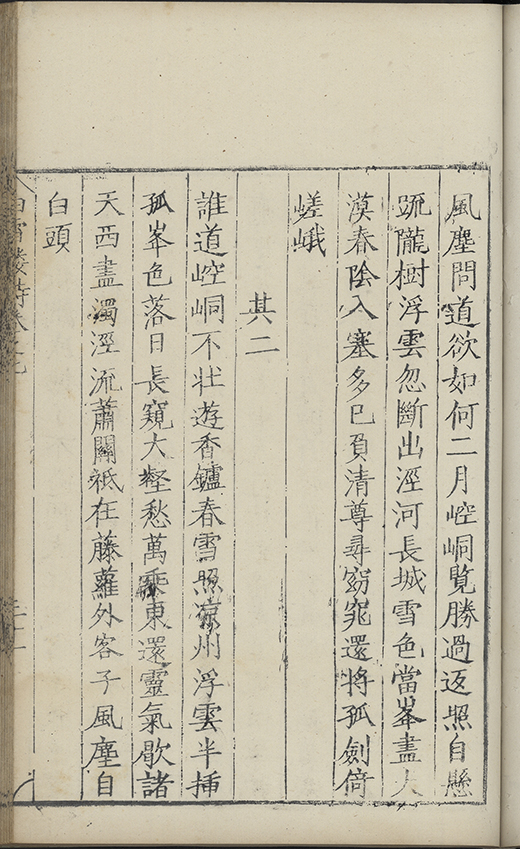 風塵問道欲如何二月崆峒覽勝過返照自懸
䟽隴樹浮雲忽斷出涇河長城雪色當峯盡大
漠春陰入塞多已負清尊尋窈窕還將孤劍倚
嵯峨
其二
誰道崆峒不壯遊香鑪春雪照凉州浮雲半揷
孤峯色落日長窺大壑愁萬乘東還靈氣歇諸
天西盡濁涇流蕭關秖在藤蘿外客子風塵自
白頭
白雪樓詩卷之九